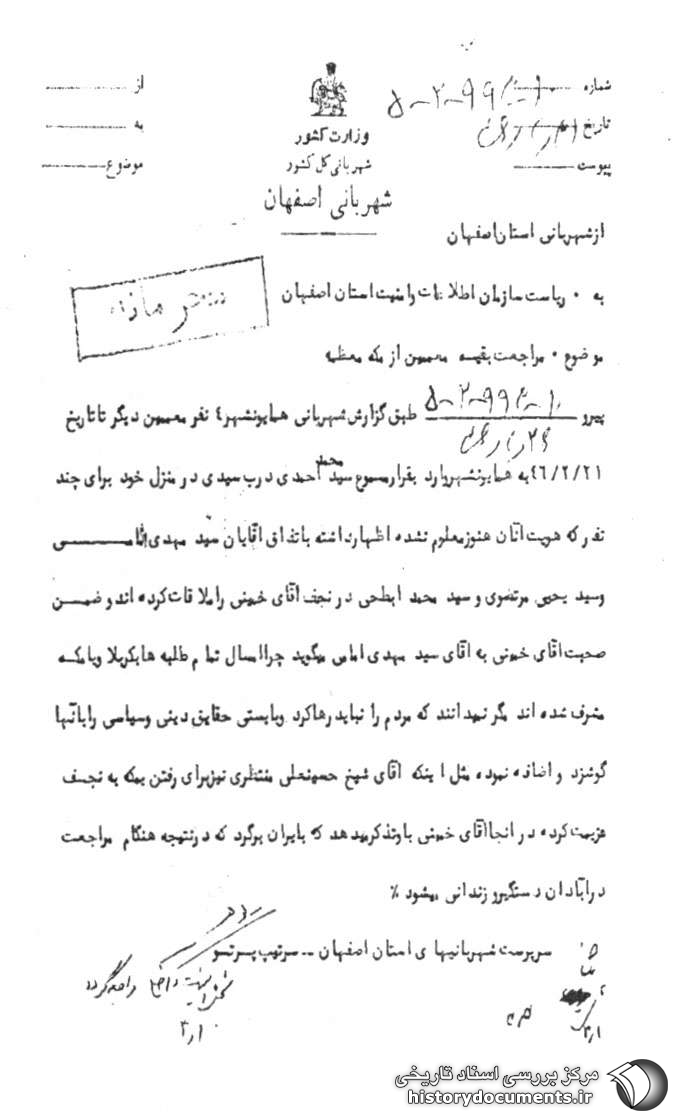 شماره
تاریخ
پیوست
از
به
موضوع
وزارت کشور
شهربانی کل کشور
شهربانی اصفهان
ازشهربانی استان اصفهان
به . ریاست سازمان اطلاعات وامنیت استان اصفهان
موضوع . مراجعت بقیه معممین از مکه معظمه
پیرو ۵-۲-۹۹ طبق گزارش شهربانی همایونشهر ٤ نفر معممین دیگر تا تاریخ
٤٦/٢/٢١ به همایونشهر وارد بقرار مسموع سید محمد احمدی درب سیدی در منزل خود برای چند
نفر که هویت آنان هنوز معلوم نشده اظهار داشته باتفاق آقایان سید مهدی امامی
وسید یحیی مرتضوی و سید محمد ابطحی در نجف آقای خمینی را ملاقات کرده اند و ضمن
صحبت آقای خمینی به آقای سید مهدی امامی میگوید چرا امسال تمام طلبه ها بکربلا ویا مکه
مشرف شده اند مگر نمیدانند که مردم را نباید رها کرد وبایستی حقایق دینی وسیاسی را بآنها
گوشزد و اضافه نموده مثل اینکه آقای شیخ حسینعلی منتظری نیز برای رفتن بمکه به نجف
عزیمت کرده در آنجا آقای خمینی باو تذکر میدهد که بایران برگرد که در نتیجه هنگام مراجعت
در آبادان دستگیر و زندانی میشود ٪
سرپرست شهربانیهای استان اصفهان -- سرتیپ پرتو
مرکز بررسی اسناد تاریخی
historydocuments.ir